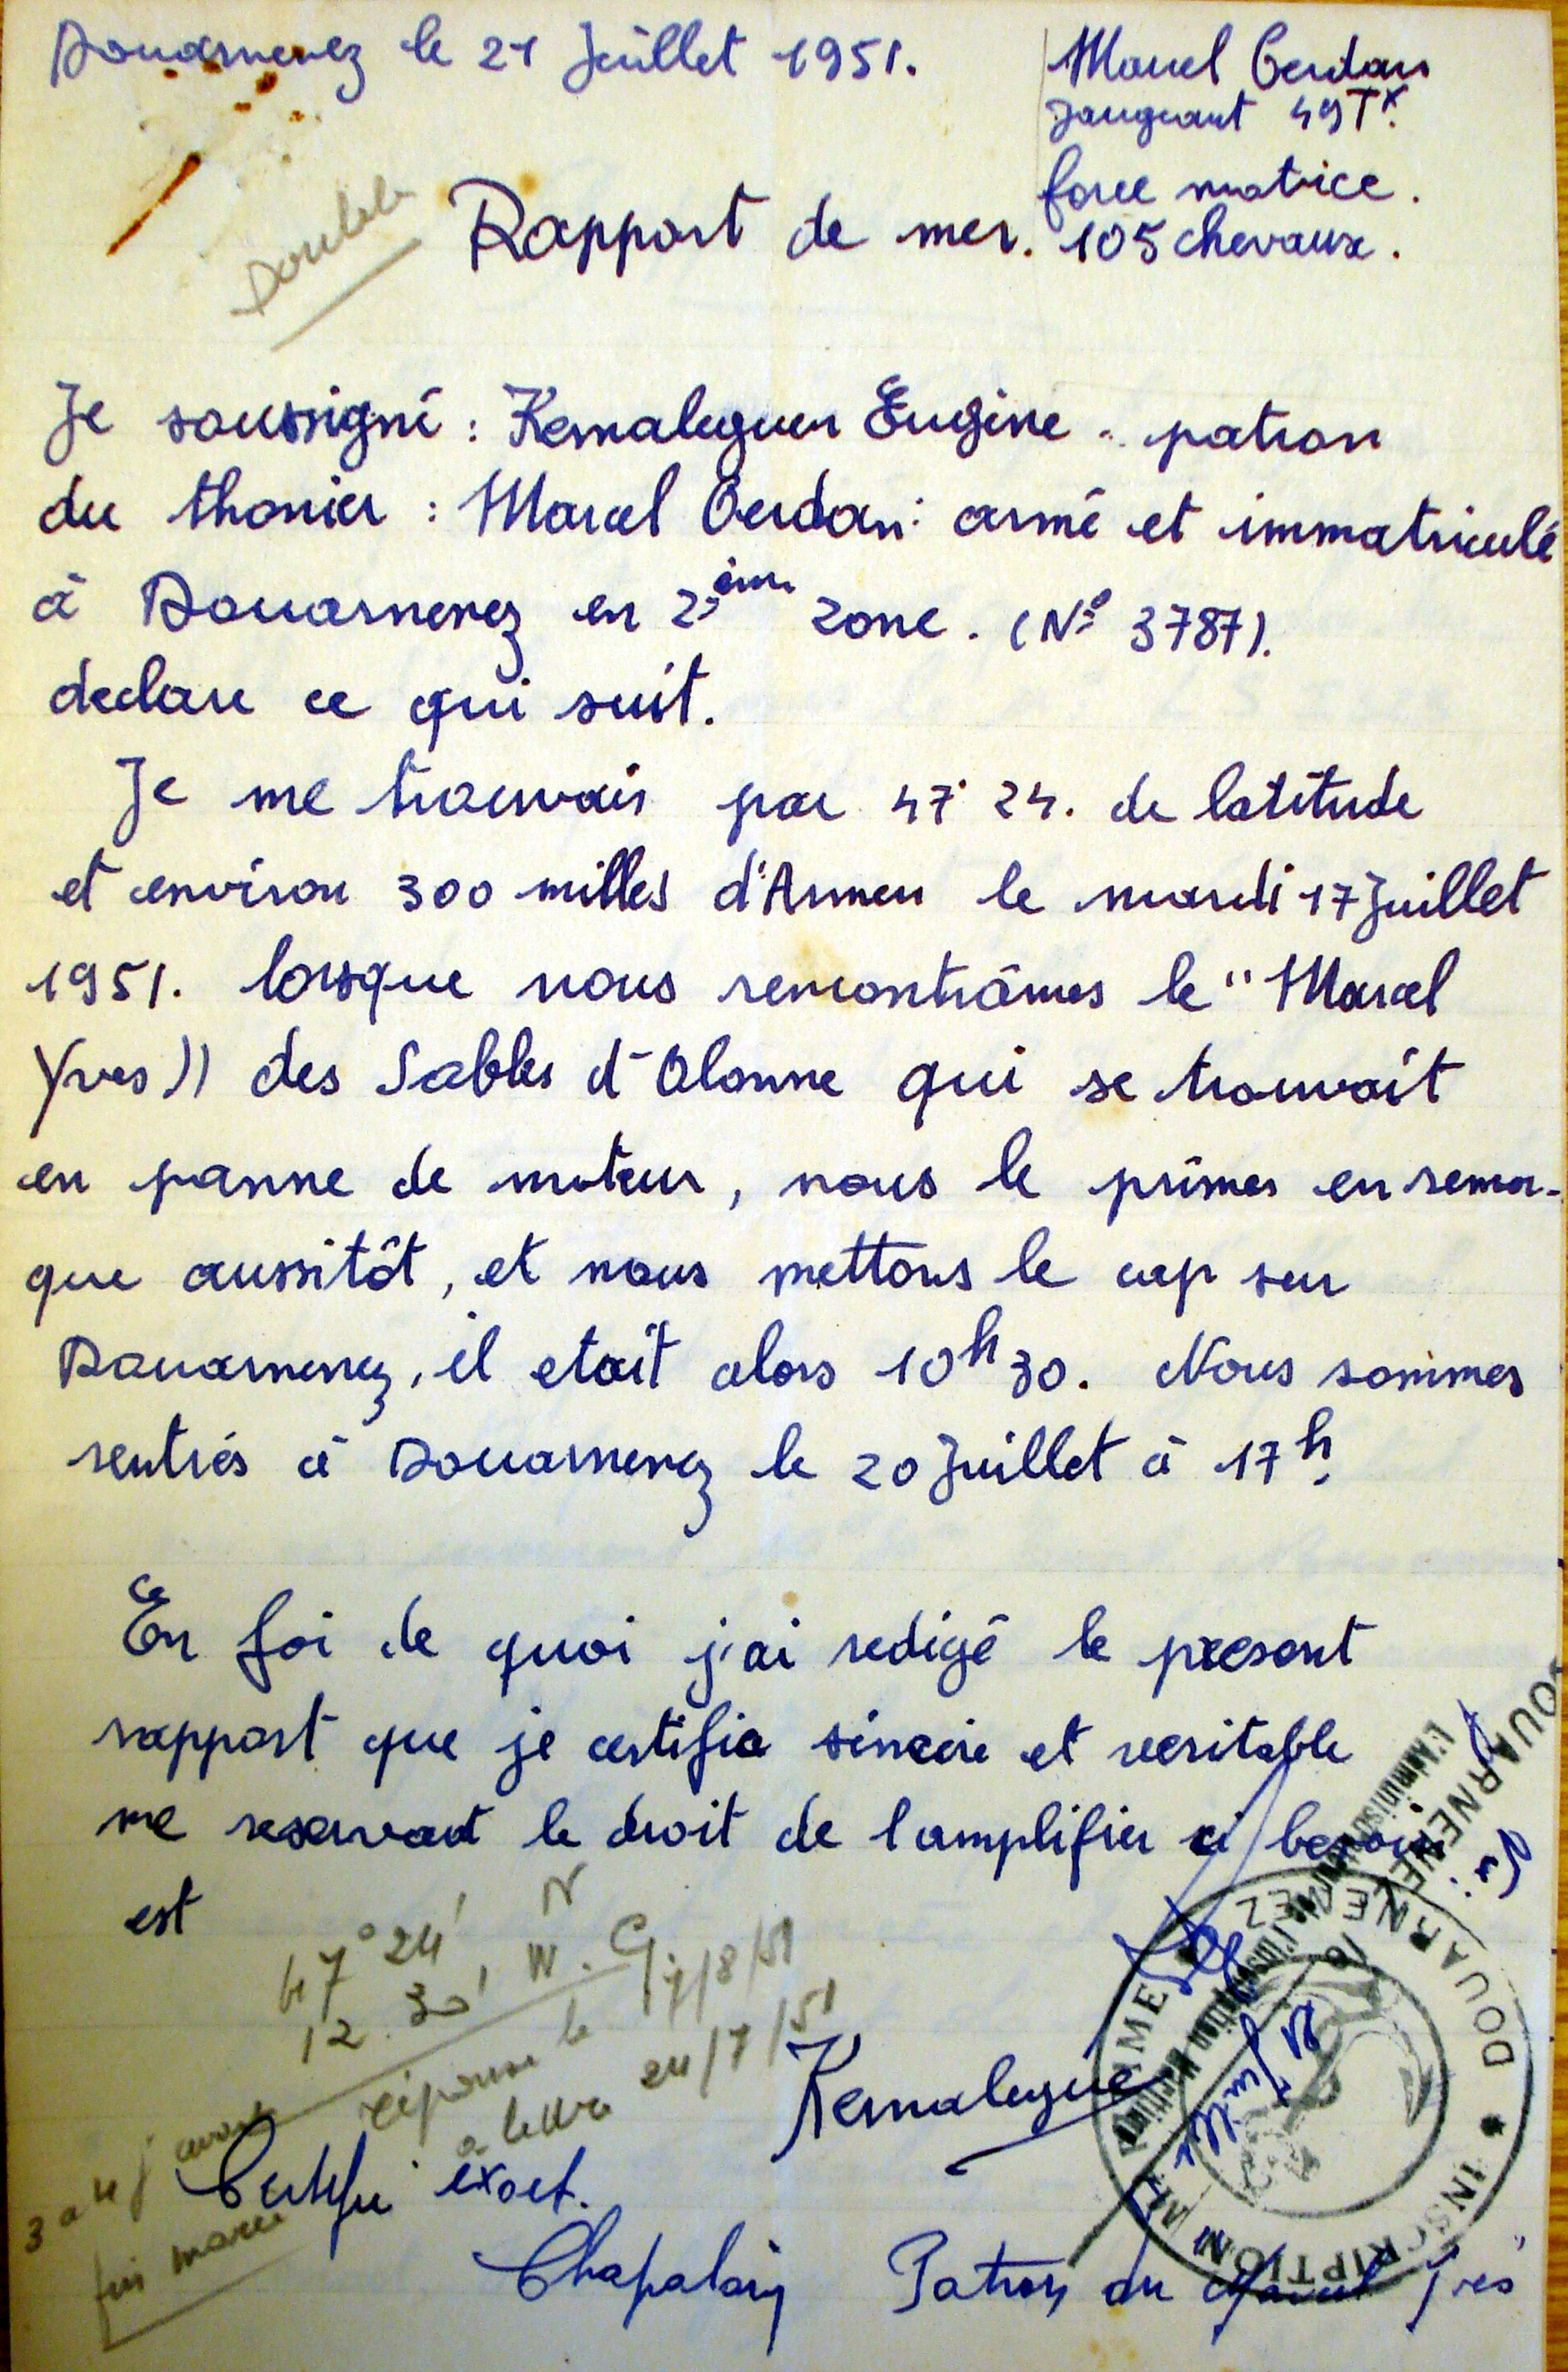 Douarnenez le 21 Juillet 1951.
Marcel Cerdan
Jaugeant 49 Tx.
force motrice.
105 chevaux.
Double
Rapport de mer.
Je soussigné : Kernaleguen Eugène - patron
du thonier : Marcel Cerdan : armé et immatriculé
à Douarnenez en 2ème zone. (N° 3787).
declare ce qui suit.
Je me trouvais par 47° 24. de latitude
et environ 300 milles d'Armen le mardi 17 Juillet
1951. lorsque nous rencontrâmes le "Marcel
Yves)) des Sables d'Olonne qui se trouvait
en panne de moteur, nous le primes en remor-
que aussitôt, et nous mettons le cap sur
Douarnenez, il etait alors 10h30. Nous sommes
rentrés à Douarnenez le 20 Juillet à 17h.
En foi de quoi j'ai redigé le present
rapport que je certifie sincere et veritable
me reservant le droit de l'amplifier si besoin
est
47° 24' N
12. 30' W. G.
réponse le 7/8/51
à lettre 24/7/51
3 ou 4 j avant
fin marée
Kernaleguen
Certifié exact.
Chapalain Patron du Marcel Yves
DOUARNENEZ
L'Administrateur de l'Inscription Maritime
21 Juillet
INSCRIPTION MARITIME * DOUARNENEZ